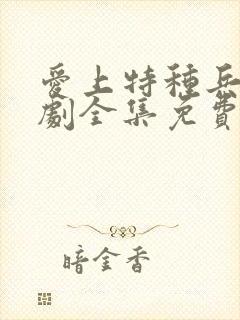 愛上特種兵
劇全集免費
暗金香